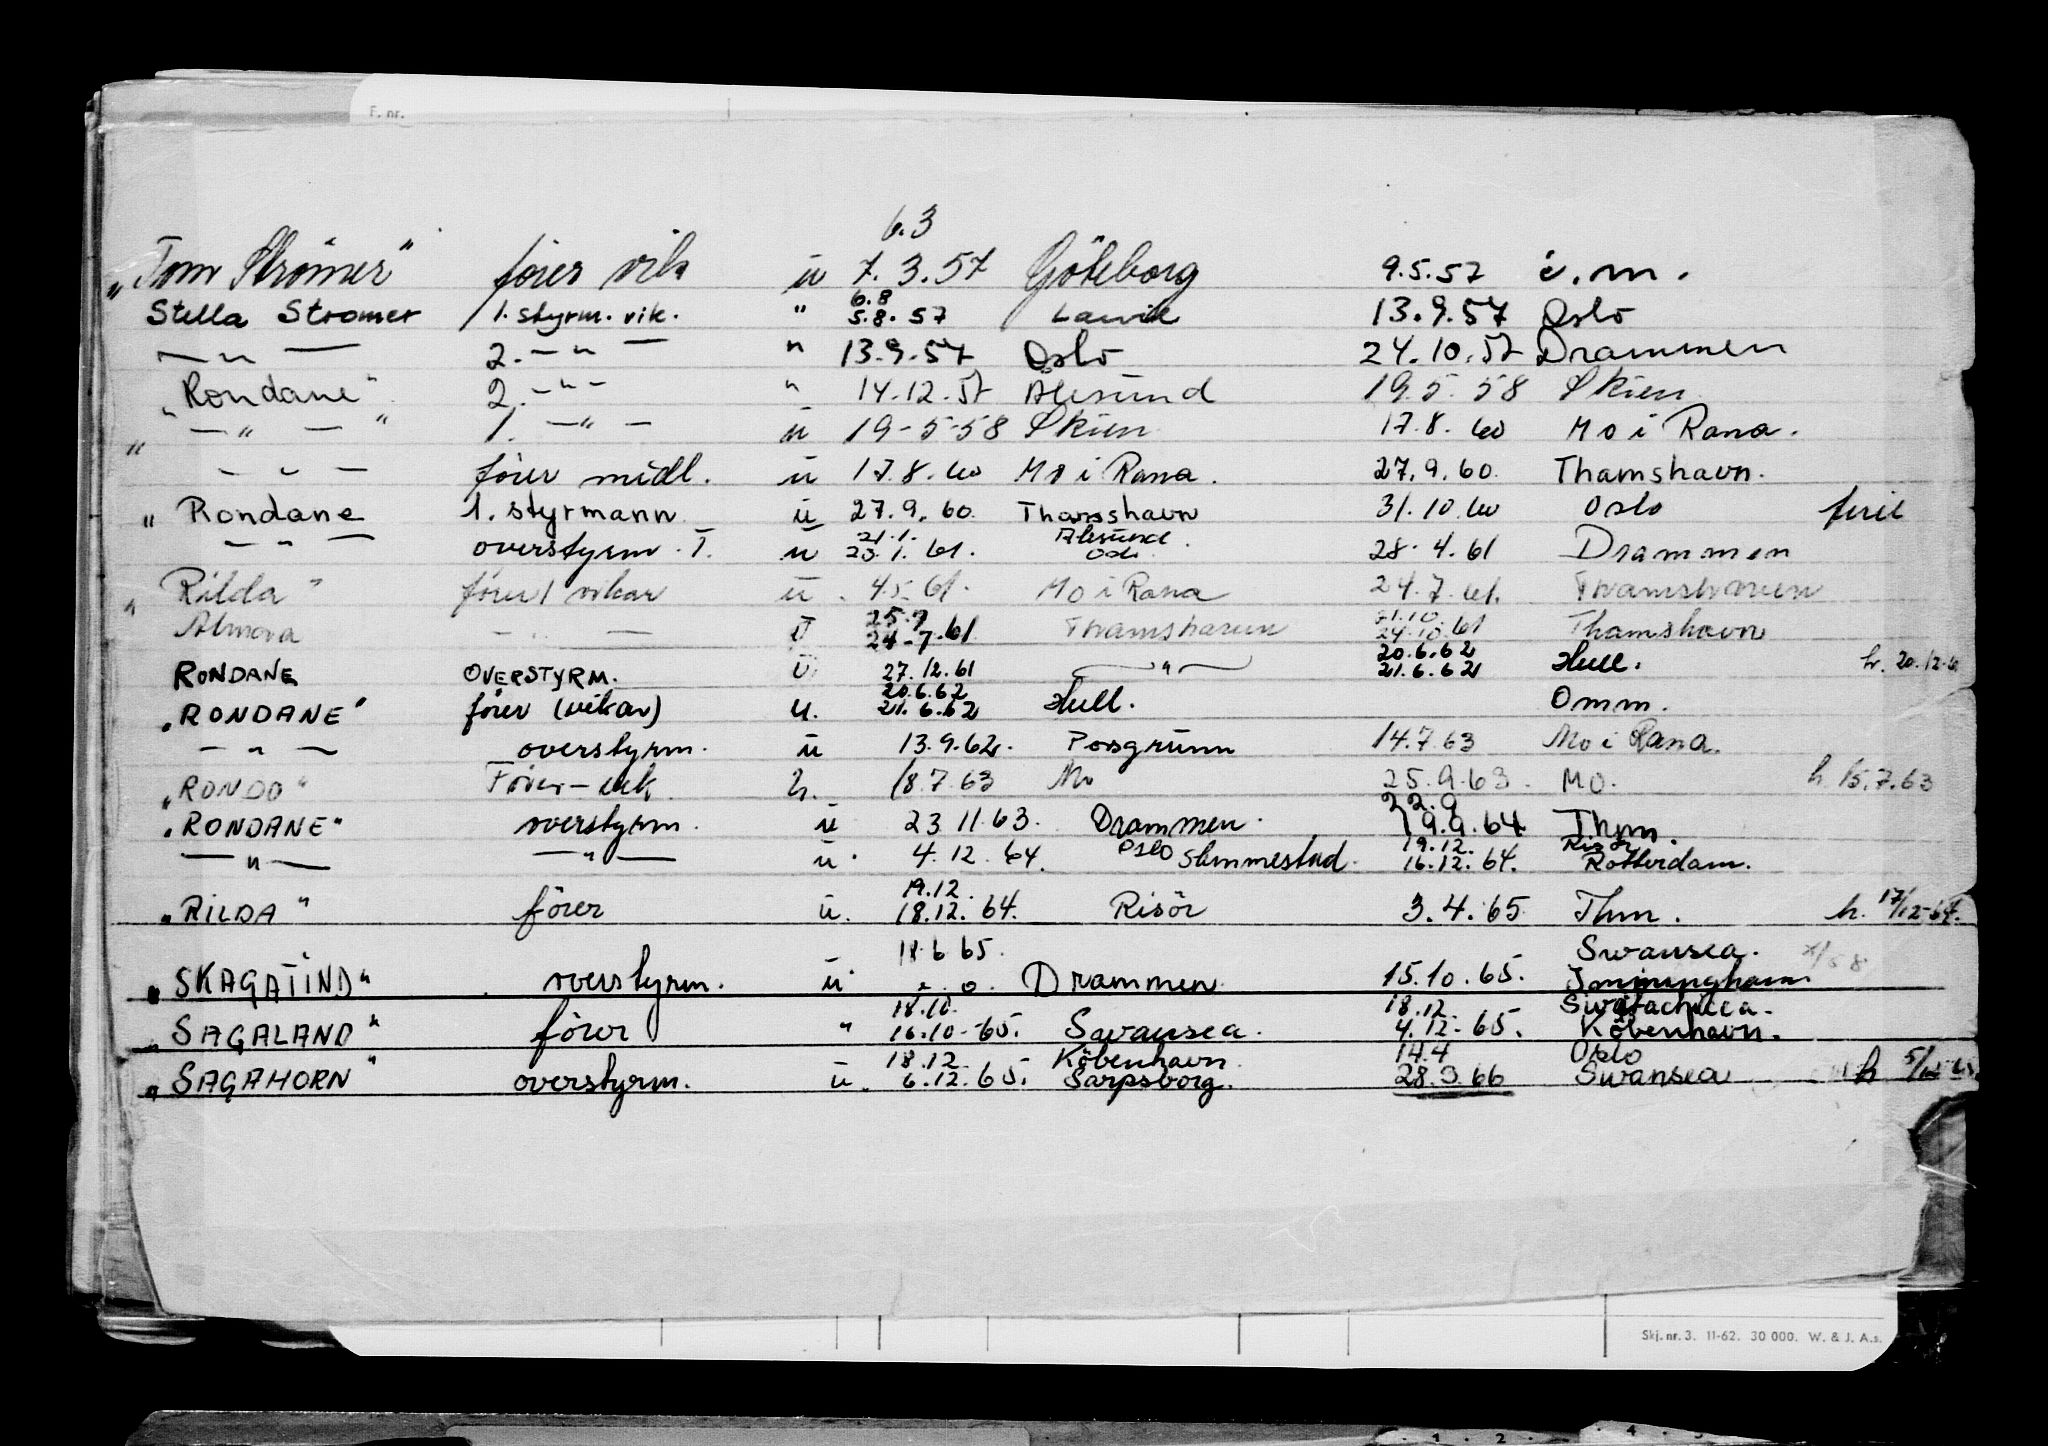 F. nr.
6.3
"Tom Strömer" förer vik u 7.3.57 Göteborg 9.5.57 i.m.
6.8
Stella Strömer 1. styrm. vik. " 5.8.57 Larvik 13.9.57 Oslo
— " — 2. — " — " 13.9.57 Oslo 24.10.57 Drammen
"Rondane" 2. — " — " 14.12.57 Ålesund 19.5.58 Skien
" — " — " 1. — " — u 19-5-58 Skien 17.8.60 Mo i Rana.
— " — förer midl. u 17.8.60 Mo i Rana. 27.9.60. Thamshavn.
" Rondane 1. styrmann u 27.9.60. Thamshavn 31.10.60 Oslo ferie
21.1. Ålesund
— " — overstyrm. T. u 20.1.61. Oslo. 28.4.61 Drammen
"Rilda" förer/vikar u. 4.5.61. Mo i Rana 24.7.61. Thamshavn
25.7 21.10
Almora — " — u 24-7-61 Thamshavn 24.10.61 Thamshavn
20.6.62
RONDANE OVERSTYRM. u. 27.12.61 — " — 21.6.62 Hull. h. 20.12.6
20.6.62
"RONDANE" förer (vikar) u. 21.6.62 Hull. Omm.
— " — overstyrm. u 13.9.62. Porsgrunn 14.7.63 Mo i Rana.
"RONDO" Förer-vik. h. 18.7.63 Mo 25.9.63. MO. h. 15.7.63
22.9
"RONDANE" overstyrm. u 23.11.63. Drammen. 19.9.64 Thm.
19.12. Risör
— " — — " — u. 4.12.64. Oslo Slemmestad. 16.12.64. Rotterdam.
19.12.
"RILDA" förer u. 18.12.64. Risör 3.4.65 Thm. h. 17/12-64.
18.6.65. Swansea.
"SKAGATIND" overstyrm. u. Drammen 15.10.65. Immingham
18.10. 18.12.
"SAGALAND" förer " 16.10-65. Swansea. 4.12-65. Köbenhavn.
18.12. Köbenhavn 14.4 Oslo
"SAGAHORN" overstyrm. u. 6.12.65. Sarpsborg. 28.3.66 Swansea h
Skj. nr. 3. 11-62. 30 000. W. & J. A.s.